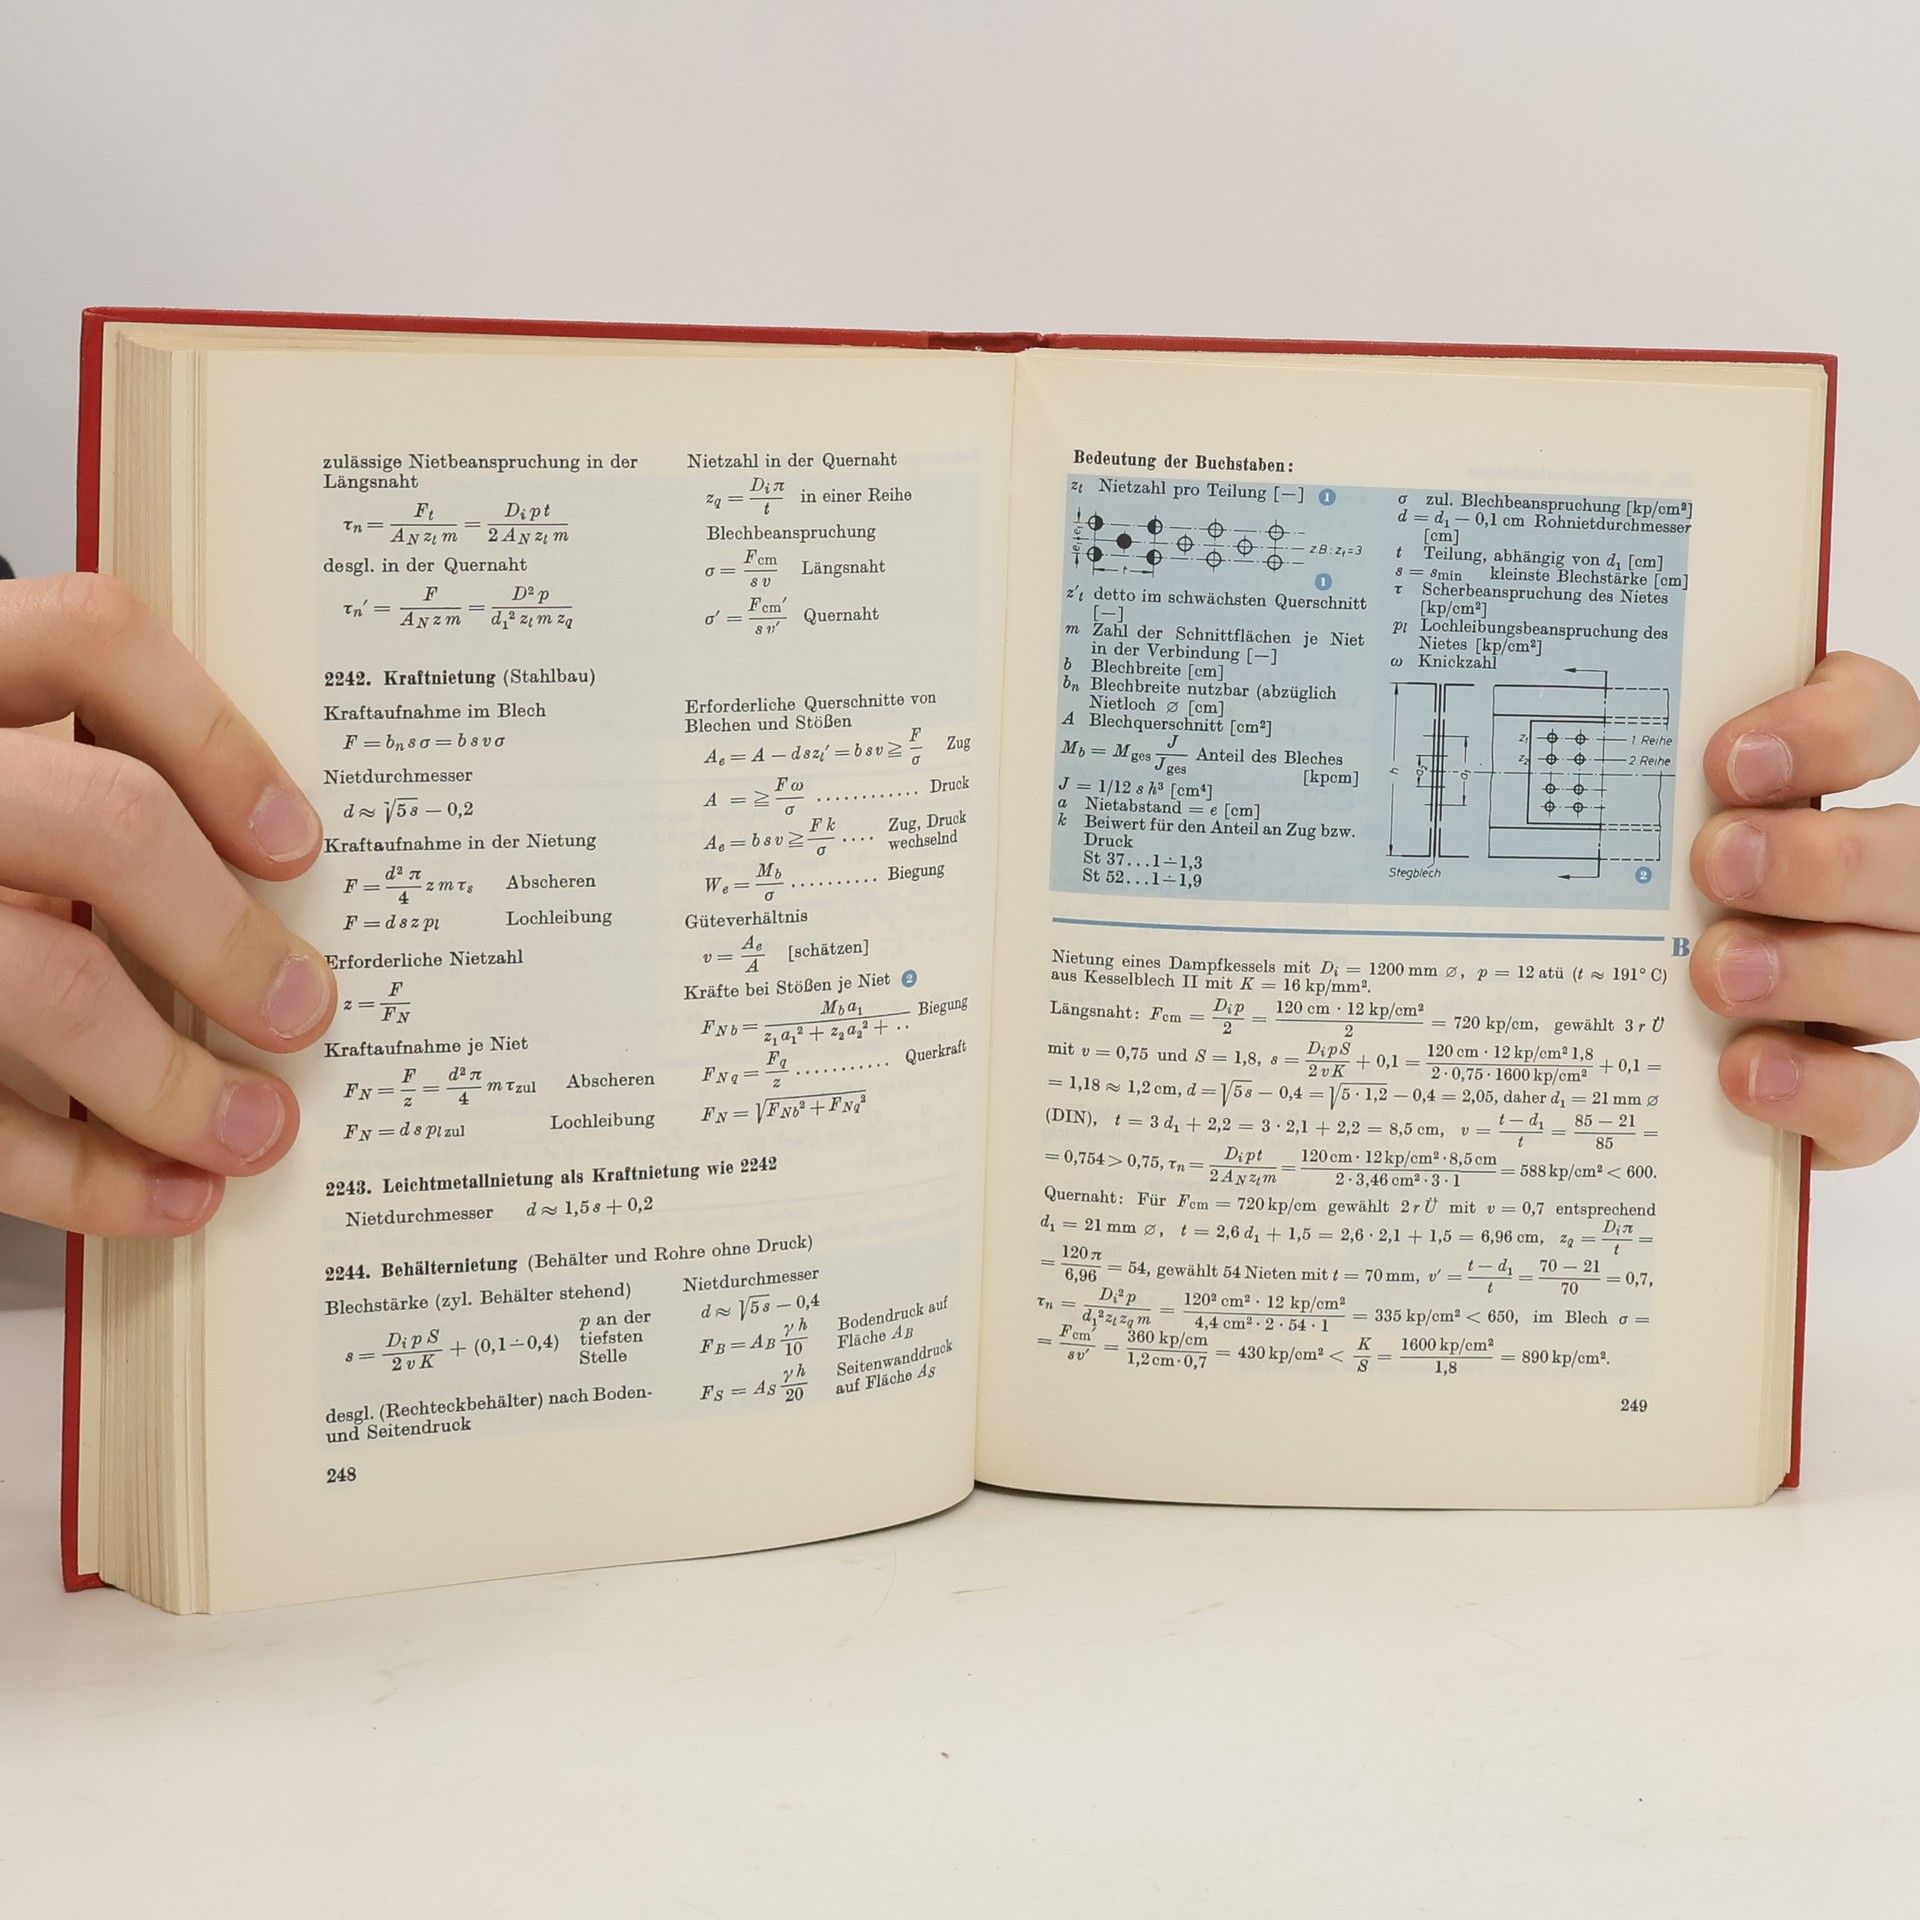 zulässige Nietbeanspruchung in der
Längsnaht
τn = Ft / (AN zt m) = Di p t / (2 AN zt m)
desgl. in der Quernaht
τn′ = F / (AN z m) = D² p / (d1² zt m zq)
Nietzahl in der Quernaht
zq = Di π / t in einer Reihe
Blechbeanspruchung
σ = Fcm / (s v) Längsnaht
σ′ = Fcm′ / (s v′) Quernaht
2242. Kraftnietung (Stahlbau)
Kraftaufnahme im Blech
F = bn s σ = b s v σ
Nietdurchmesser
d ≈ √5 s − 0,2
Kraftaufnahme in der Nietung
F = d² π / 4 z m τs Abscheren
F = d s z pl Lochleibung
Erforderliche Nietzahl
z = F / FN
Kraftaufnahme je Niet
FN = F / z = d² π / 4 m τzul Abscheren
FN = d s pl zul Lochleibung
Erforderliche Querschnitte von
Blechen und Stößen
Ae = A − d s zt′ = b s v ≧ F / σ Zug
A = ≧ F ω / σ ............ Druck
Ae = b s v ≧ F k / σ .... Zug, Druck
wechselnd
We = Mb / σ .......... Biegung
Güteverhältnis
v = Ae / A [schätzen]
Kräfte bei Stößen je Niet 2
FNb = Mb a1 / (z1 a1² + z2 a2² + ..) Biegung
FNq = Fq / z ........... Querkraft
FN = √FNb² + FNq²
2243. Leichtmetallnietung als Kraftnietung wie 2242
Nietdurchmesser d ≈ 1,5 s + 0,2
2244. Behälternietung (Behälter und Rohre ohne Druck)
Blechstärke (zyl. Behälter stehend)
s = Di p S / (2 v K) + (0,1 ÷ 0,4) p an der
tiefsten
Stelle
desgl. (Rechteckbehälter) nach Boden-
und Seitendruck
Nietdurchmesser
d ≈ √5 s − 0,4
FB = AB γ h / 10 Bodendruck auf
Fläche AB
FS = AS γ h / 20 Seitenwanddruck
auf Fläche AS
248
Bedeutung der Buchstaben:
zt Nietzahl pro Teilung [—] 1
e1
e1
t
z.B: zt=3
1
z′t detto im schwächsten Querschnitt
[—]
m Zahl der Schnittflächen je Niet
in der Verbindung [—]
b Blechbreite [cm]
bn Blechbreite nutzbar (abzüglich
Nietloch ∅ [cm]
A Blechquerschnitt [cm²]
Mb = Mges J / Jges Anteil des Bleches
[kpcm]
J = 1/12 s h³ [cm⁴]
a Nietabstand = e [cm]
k Beiwert für den Anteil an Zug bzw.
Druck
St 37...1÷1,3
St 52...1÷1,9
σ zul. Blechbeanspruchung [kp/cm²]
d = d1 − 0,1 cm Rohnietdurchmesser
[cm]
t Teilung, abhängig von d1 [cm]
s = smin kleinste Blechstärke [cm]
τ Scherbeanspruchung des Nietes
[kp/cm²]
pl Lochleibungsbeanspruchung des
Nietes [kp/cm²]
ω Knickzahl
h
z1
z2
1. Reihe
2 Reihe
Stegblech
2
B
Nietung eines Dampfkessels mit Di = 1200 mm ∅, p = 12 atü (t ≈ 191° C)
aus Kesselblech II mit K = 16 kp/mm².
Längsnaht: Fcm = Di p / 2 = 120 cm · 12 kp/cm² / 2 = 720 kp/cm, gewählt 3 r Ü
mit v = 0,75 und S = 1,8, s = Di p S / (2 v K) + 0,1 = 120 cm · 12 kp/cm² 1,8 / (2 · 0,75 · 1600 kp/cm²) + 0,1 =
= 1,18 ≈ 1,2 cm, d = √5 s − 0,4 = √5 · 1,2 − 0,4 = 2,05, daher d1 = 21 mm ∅
(DIN), t = 3 d1 + 2,2 = 3 · 2,1 + 2,2 = 8,5 cm, v = (t − d1) / t = (85 − 21) / 85 =
= 0,754 > 0,75, τn = Di p t / (2 AN zt m) = 120 cm · 12 kp/cm² · 8,5 cm / (2 · 3,46 cm² · 3 · 1) = 588 kp/cm² < 600.
Quernaht: Für Fcm = 720 kp/cm gewählt 2 r Ü mit v = 0,7 entsprechend
d1 = 21 mm ∅, t = 2,6 d1 + 1,5 = 2,6 · 2,1 + 1,5 = 6,96 cm, zq = Di π / t =
= 120 π / 6,96 = 54, gewählt 54 Nieten mit t = 70 mm, v′ = (t − d1) / t = (70 − 21) / 70 = 0,7,
τn = Di² p / (d1² zt zq m) = 120² cm² · 12 kp/cm² / (4,4 cm² · 2 · 54 · 1) = 335 kp/cm² < 650, im Blech σ =
= Fcm′ / (s v′) = 360 kp/cm / (1,2 cm · 0,7) = 430 kp/cm² < K / S = 1600 kp/cm² / 1,8 = 890 kp/cm².
249